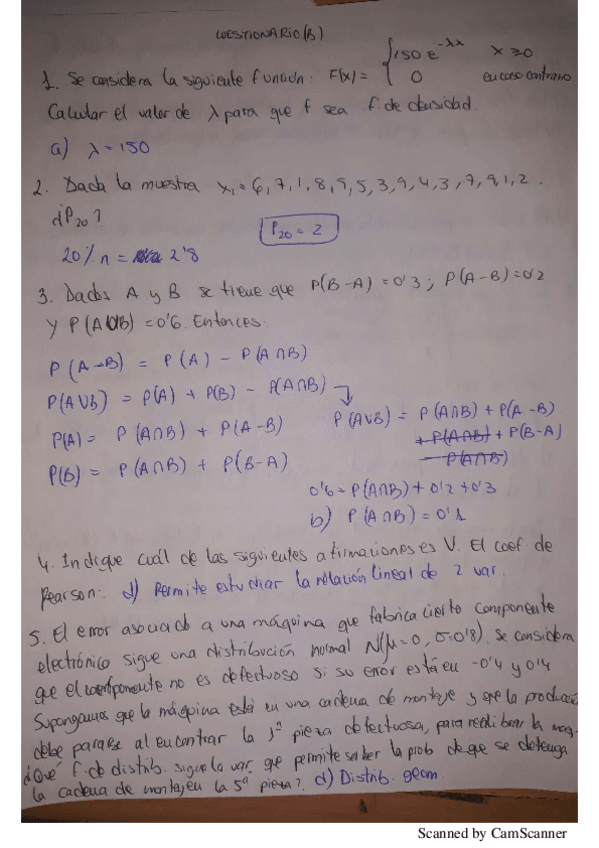 CUESTIONARIO(B)
1. Se considera la siguiente función: F(x) = { 150 e^-λx x ≥ 0
0 en caso contrario
Calcular el valor de λ para que f sea f. de densidad.
a) λ = 150
2. Dada la muestra xi = 6, 7, 1, 8, 9, 5, 3, 9, 4, 3, 7, 9, 1, 2.
¿P20?
P20 = 2
20% n = 2'8
3. Dados A y B se tiene que P(B-A) = 0'3 ; P(A-B) = 0'2
y P(AUB) = 0'6. Entonces:
P(A-B) = P(A) - P(A∩B)
P(AUB) = P(A) + P(B) - P(A∩B)
P(A) = P(A∩B) + P(A-B)
P(B) = P(A∩B) + P(B-A)
P(AUB) = P(A∩B) + P(A-B)
+ P(A∩B) + P(B-A)
- P(A∩B)
0'6 = P(A∩B) + 0'2 + 0'3
b) P(A∩B) = 0'1
4. Indique cuál de las siguientes afirmaciones es V. El coef. de
Pearson: d) Permite estudiar la relación lineal de 2 var.
5. El error asociado a una máquina que fabrica cierto componente
electrónico sigue una distribución normal N(μ=0, σ=0'8). Se considera
que el componente no es defectuoso si su error está en -0'4 y 0'4
Supongamos que la máquina está en una cadena de montaje y que la producción
debe pararse al encontrar la 1ª pieza defectuosa, para recalibrar la maq.
¿Qué f. de distrib. sigue la var. que permite saber la prob de que se detenga
la cadena de montaje en la 5ª pieza? d) Distrib. geom.
Scanned by CamScanner